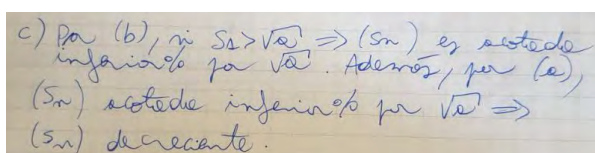 c) Por (b), si S₁ > √a ⇒ (Sn) es acotada
inferior% por √a. Además, por (a),
(Sn) acotada inferior% por √a ⇒
(Sn) decreciente.